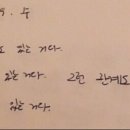 9. 우
도 있는 거다.
있는 거다. 그런 관계도
있는 거다.